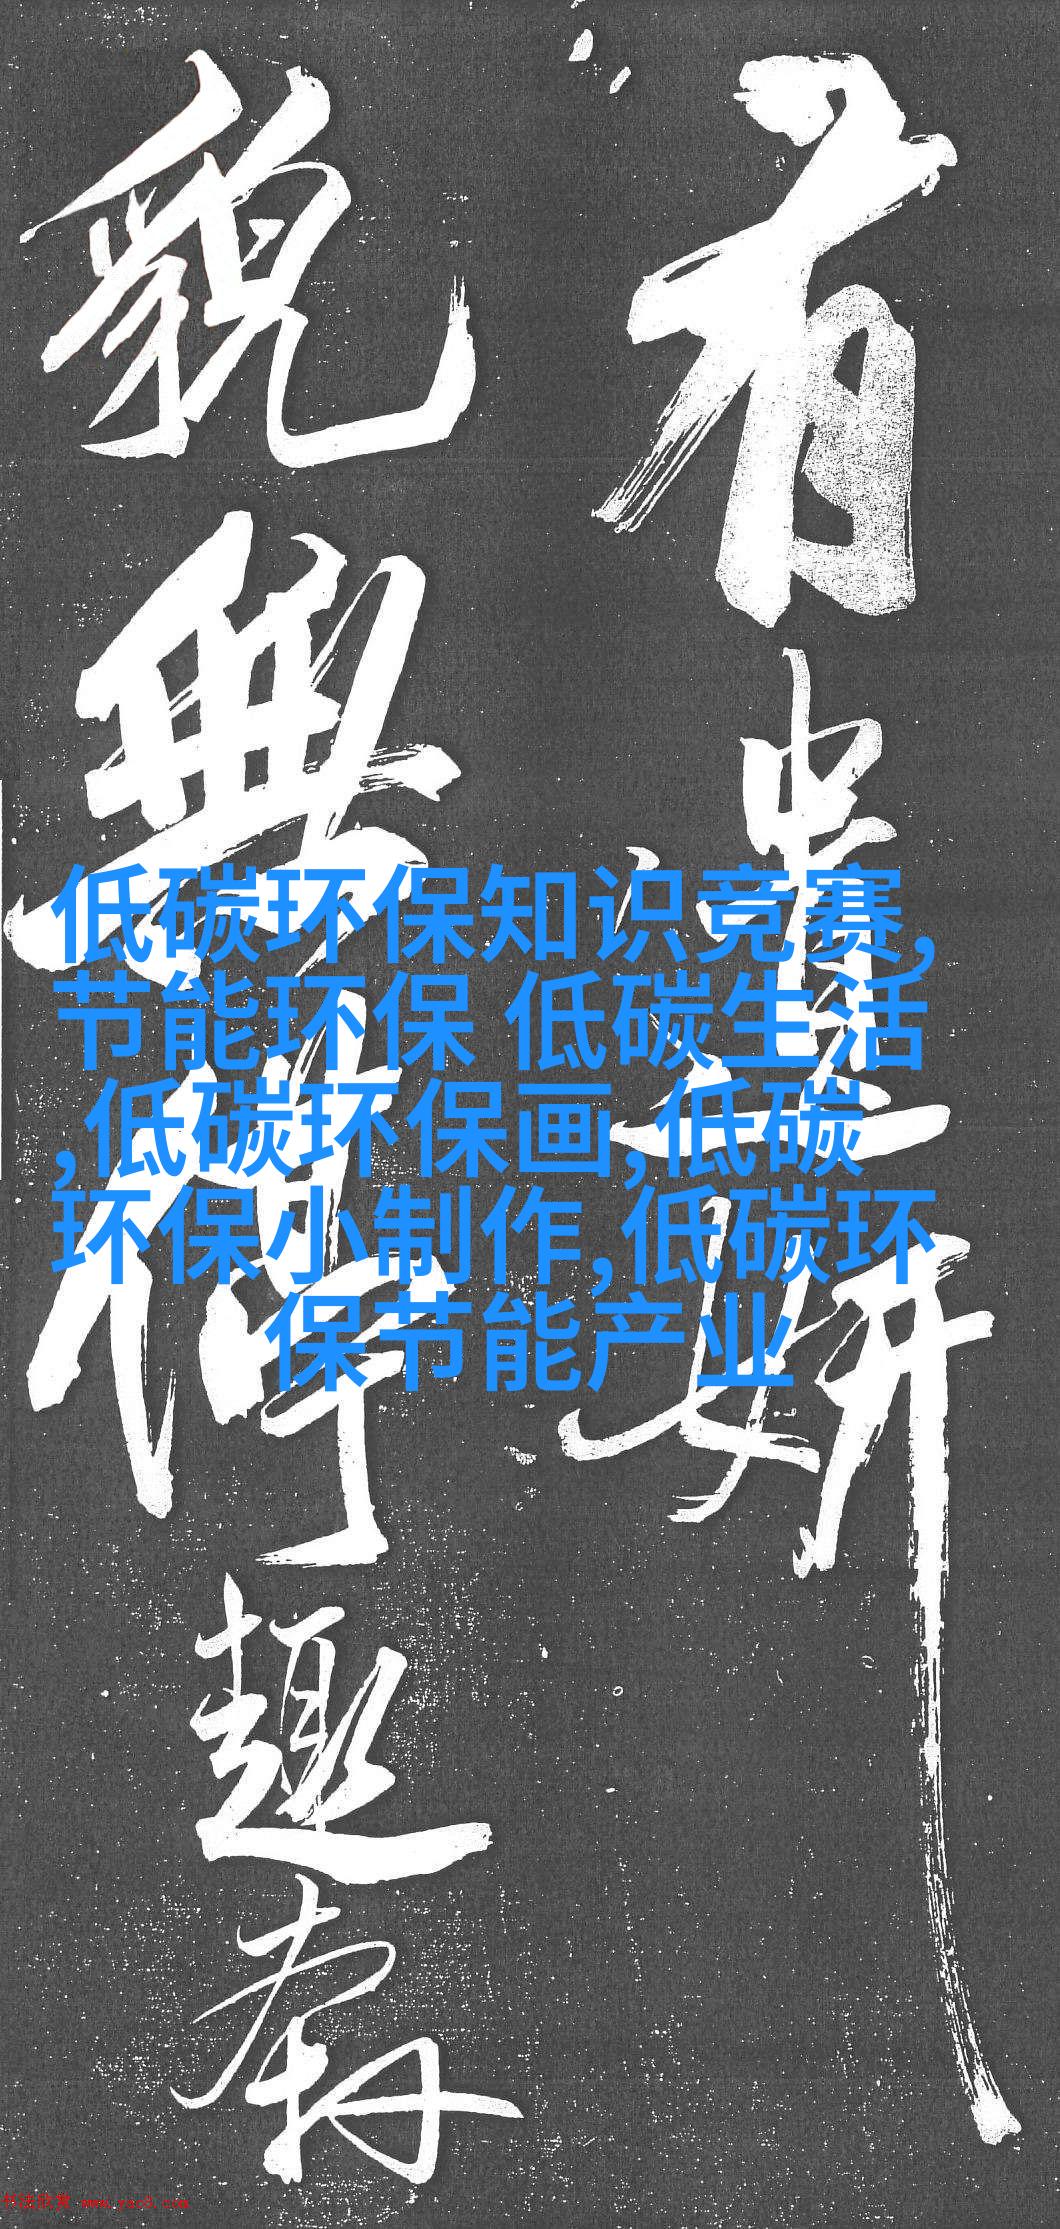 有遺妍
貌無停趣
低碳环保知识竞赛,
节能环保 低碳生活
,低碳环保画,低碳
环保小制作,低碳环
保节能产业
书法欣赏 www.yac8.com